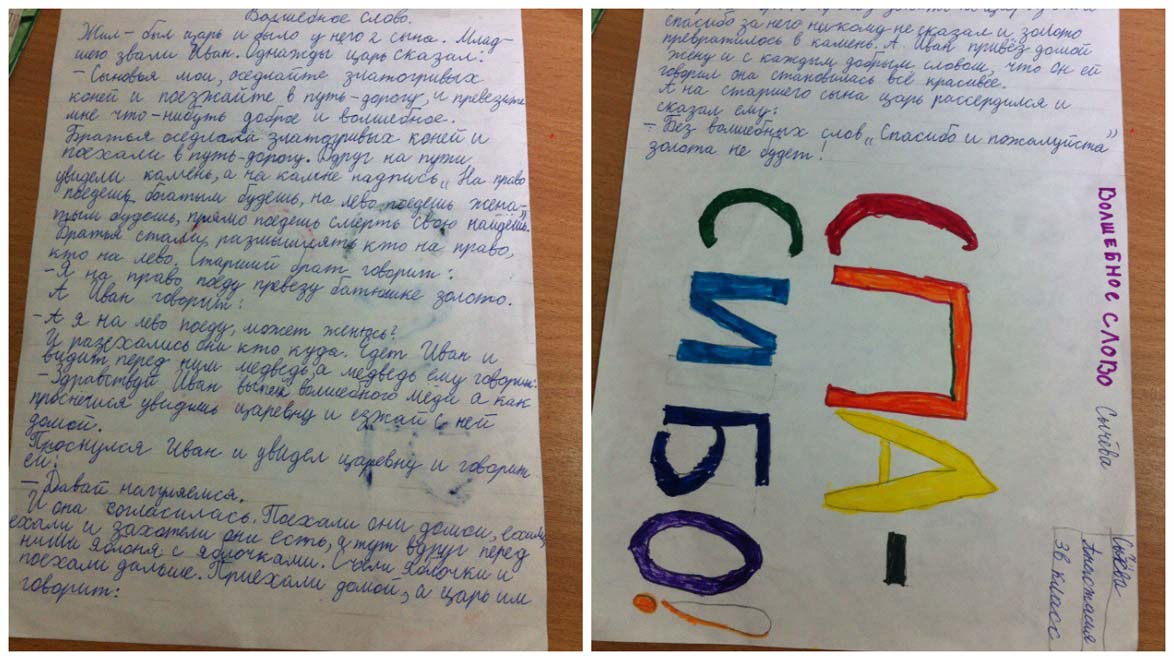 Волшебное слово.
Жил-был царь и было у него 2 сына. Млад-
шего звали Иван. Однажды царь сказал:
- Сыновья мои, оседлайте златогривых
коней и поезжайте в путь-дорогу, и превезите
мне что-нибуть доброе и волшебное.
Братья оседлала златогривых коней и
поехали в путь-дорогу. Вдруг на пути
увидели камень, а на камне надпись „На право
поедешь богатым будешь, на лево поедешь жена-
тым будешь, прямо поедешь смерть свою найдёшь."
Братья стали размышлять кто на право,
кто на лево. Старший брат говорит:
- Я на право поеду превезу батюшке золото.
А Иван говорит:
- А я на лево поеду, может женюсь?
И разъехались они кто куда. Едет Иван и
видит перед ним медведь, а медведь ему говорит:
- Здравствуй Иван выпей волшебного меда а как
проснёшся увидишь царевну и езжай с ней
домой.
Проснулся Иван и увидел царевну и говорит
ей:
- Давай
И она согласилась. Поехали они домой, ехали,
ехали и захотели они есть, а тут вдруг перед
ними яблоня с яблочками. Съели яблочки и
поехали дальше. Приехали домой, а царь им
говорит:
спасибо за него ни кому не сказал и золото
превратилось в камень. А Иван привёз домой
жену и с каждым добрым словом, что он ей
говорил она становилась всё красивее.
А на старшего сына царь рассердился и
сказал ему:
- Без волшебных слов „Спасибо и пожалуйста"
золота не будет!
ВОЛШЕБНОЕ СЛОВО Сычёва
СПА-
СИБО!
Сычёва
Анастасия
3в класс